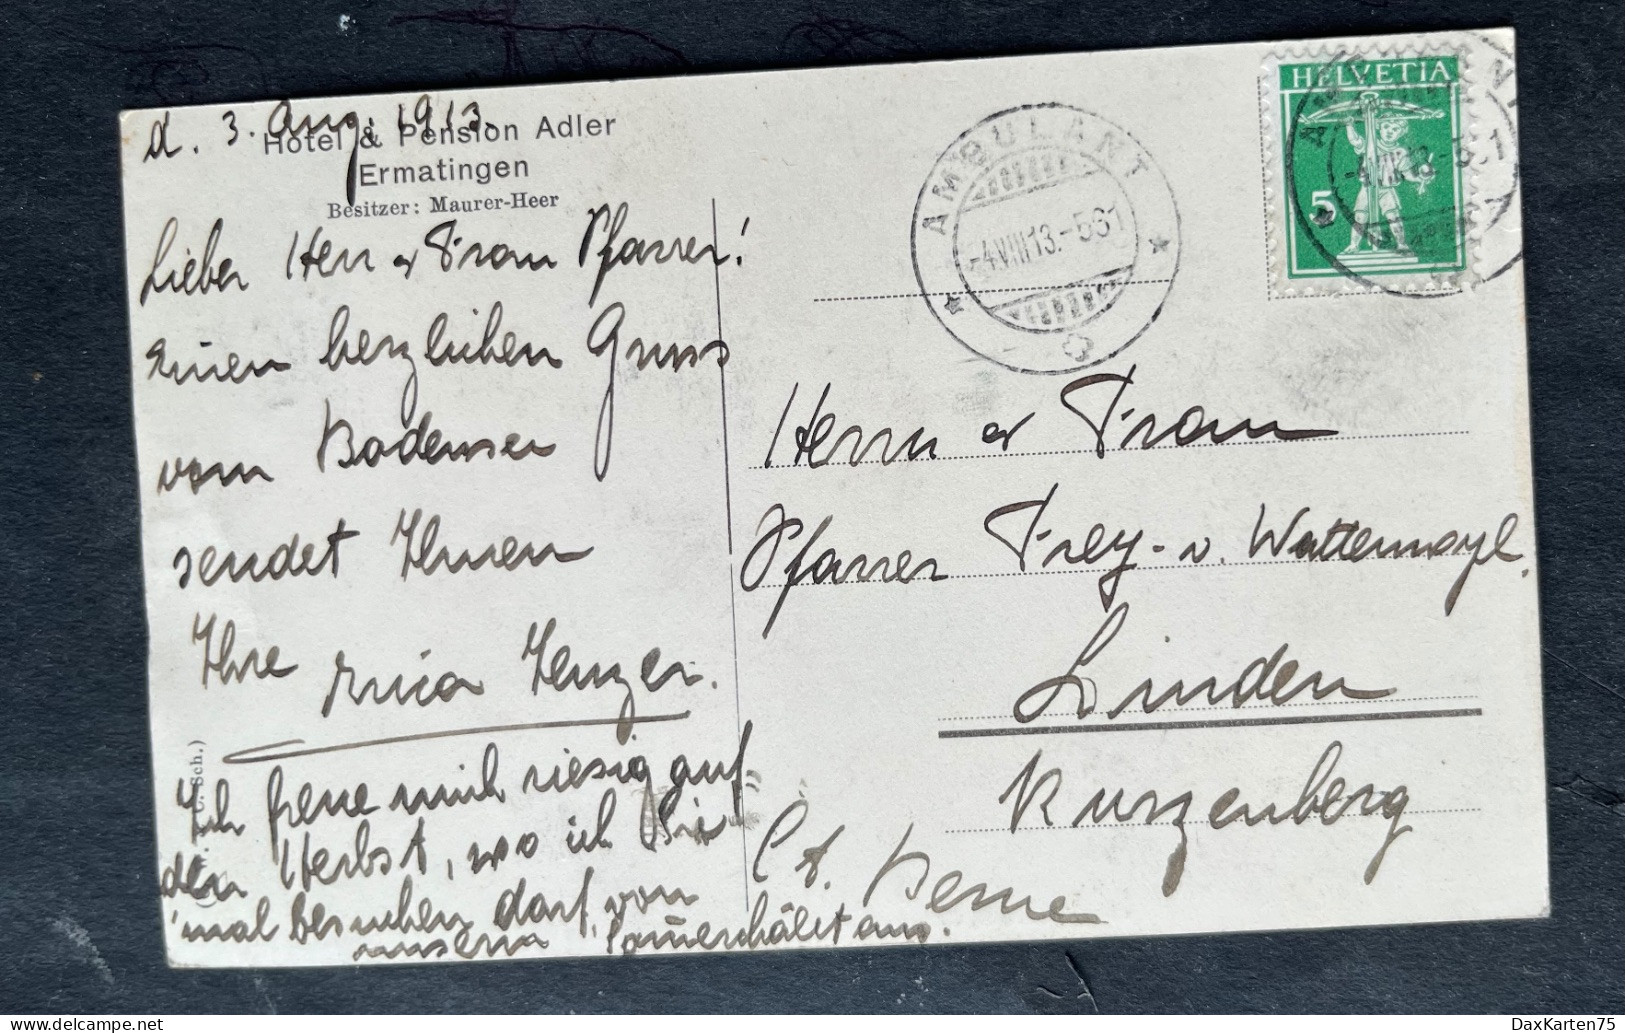 d. 3. Aug. 1913.
Hotel & Pension Adler
Ermatingen
Besitzer: Maurer-Heer
Lieber Herr & Frau Pfarrer!
Einen herzlichen Gruss
vom Bodensee
sendet Ihnen
Ihre Erica Jenzer.
Ich freue mich riesig auf
den Herbst, wo ich Sie
mal besuchen darf, von
unserm aus.
Sch.)
AMBULANT
-4.VIII.13.-561
HELVETIA
5
Herrn & Frau
Pfarrer Frey-v. Wattenwyl.
Linden
Kurzenberg
Ct. Berne
DaxKarten75